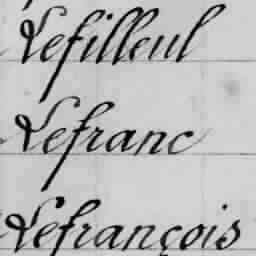 Lefilleul
Lefranc
Lefrançois